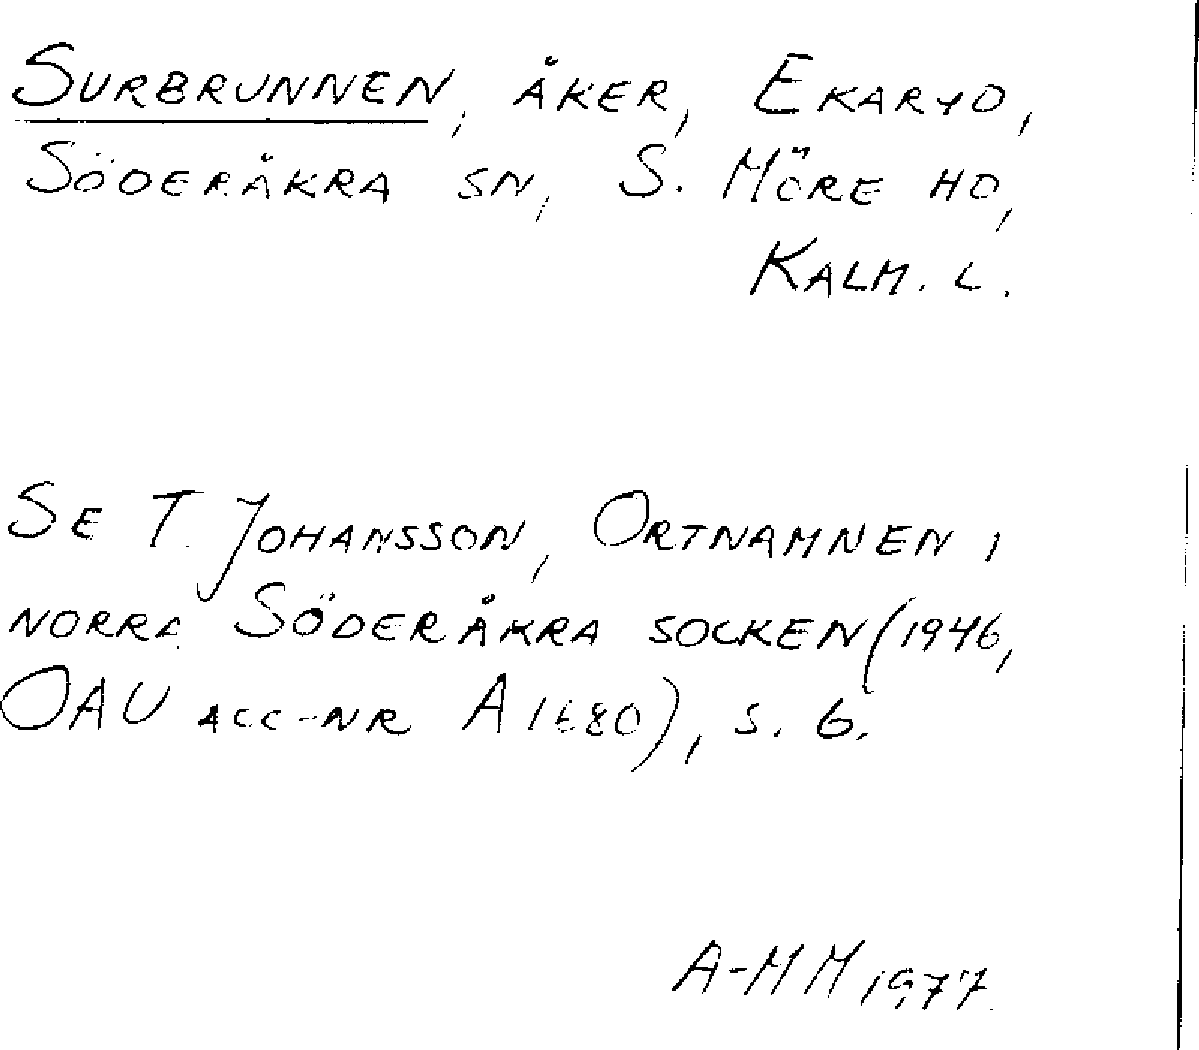 Surbrunnen, åker, Ekaryd,
Söderåkra sn, S. Möre hd,
Kalm. l.
Se T. Johansson, Ortnamnen i
norra Söderåkra socken (1946,
OAU acc-nr A1680), s. 6.
A-MM 1977.